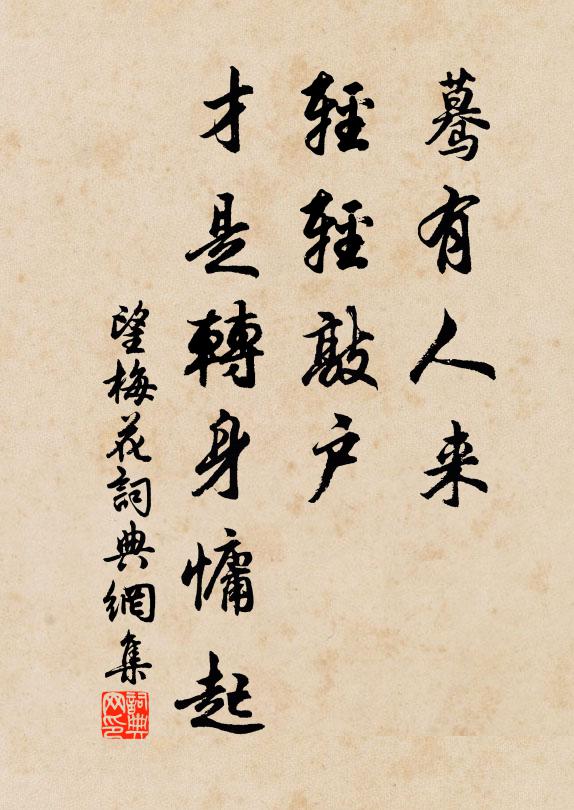 驀有人来
輕輕敲户
才是轉身慵起
望梅花詞典網集
詞典
网印